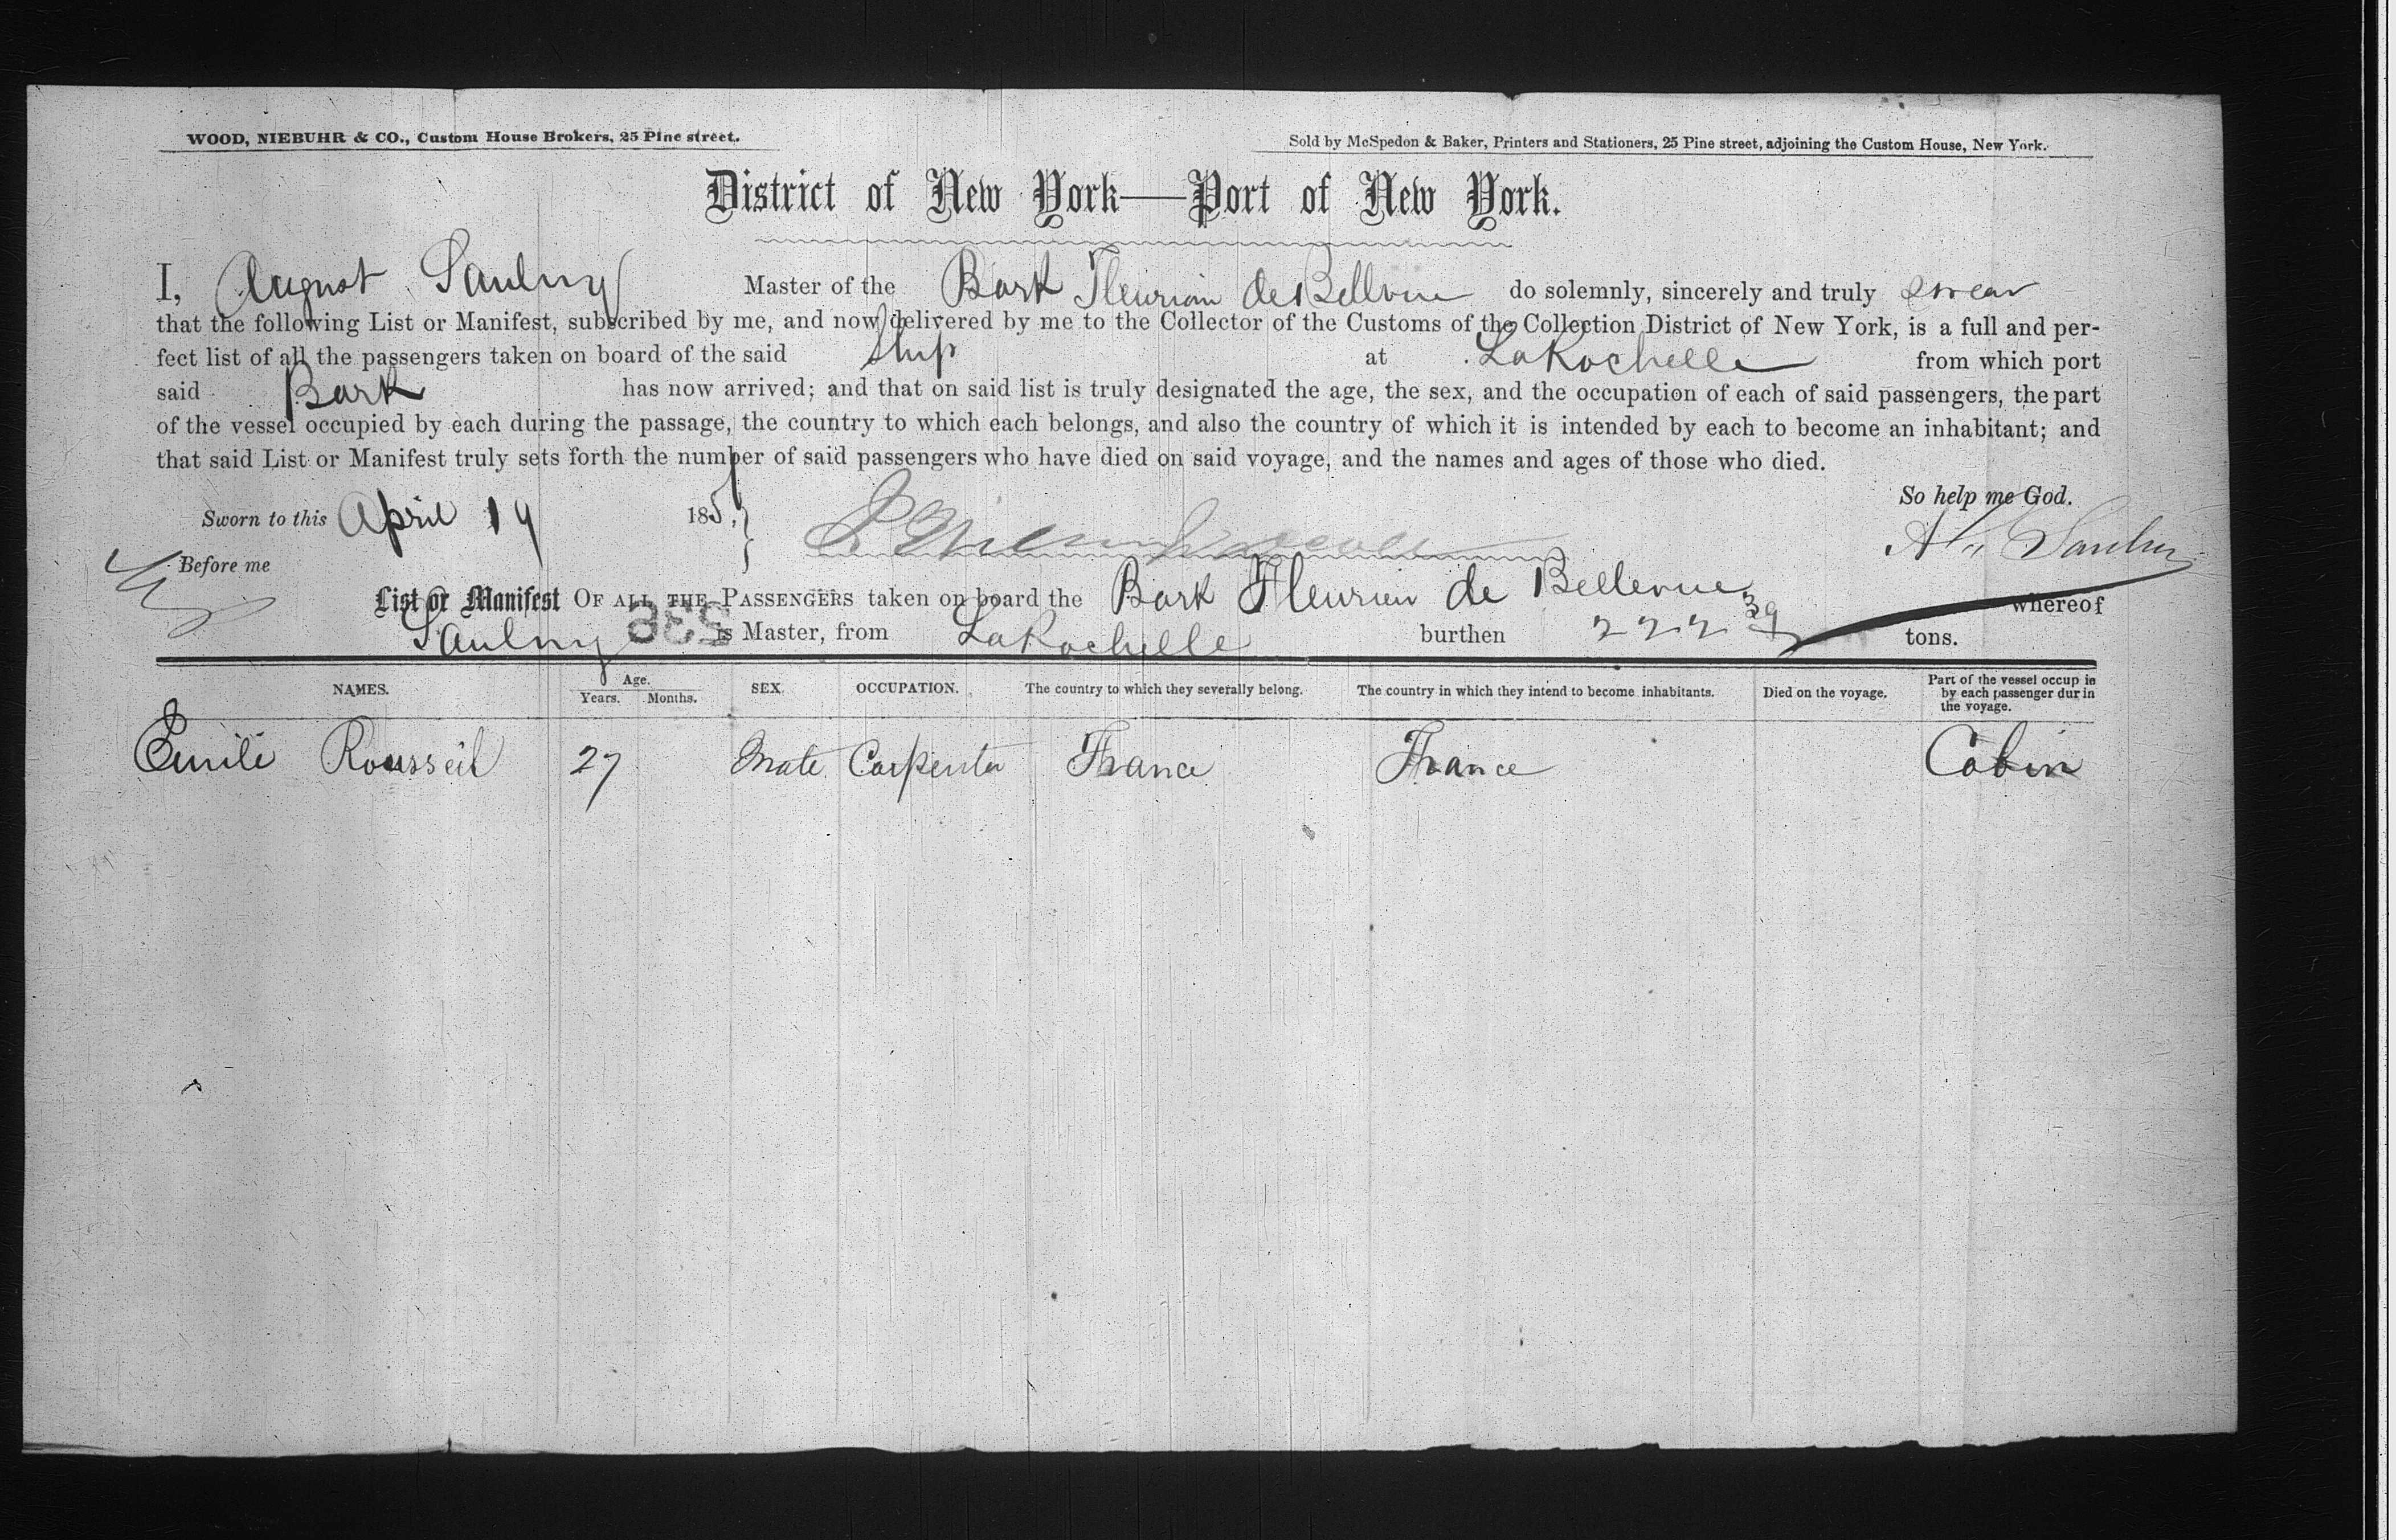 WOOD, NIEBUHR & CO., Custom House Brokers, 25 Pine street.
Sold by McSpedon & Baker, Printers and Stationers, 25 Pine street, adjoining the Custom House, New York.
District of New York—Port of New York.
I, August Saulny Master of the Bark Fleurian de Bellvue do solemnly, sincerely and truly swear
that the following List or Manifest, subscribed by me, and now delivered by me to the Collector of the Customs of the Collection District of New York, is a full and per-
fect list of all the passengers taken on board of the said Ship at LaRochelle from which port
said Bark has now arrived; and that on said list is truly designated the age, the sex, and the occupation of each of said passengers, the part
of the vessel occupied by each during the passage, the country to which each belongs, and also the country of which it is intended by each to become an inhabitant; and
that said List or Manifest truly sets forth the number of said passengers who have died on said voyage, and the names and ages of those who died.
So help me God.
Sworn to this April 19 185
Before me
List or Manifest OF ALL THE PASSENGERS taken on board the Bark Fleurian de Bellevue whereof
Saulny is Master, from LaRochelle burthen 222 39 tons.
NAMES. Age. Years. Months. SEX. OCCUPATION. The country to which they severally belong. The country in which they intend to become inhabitants. Died on the voyage. Part of the vessel occup ie
by each passenger dur in
the voyage.
Emile Rousseil 27 Male Carpenter France France Cabin